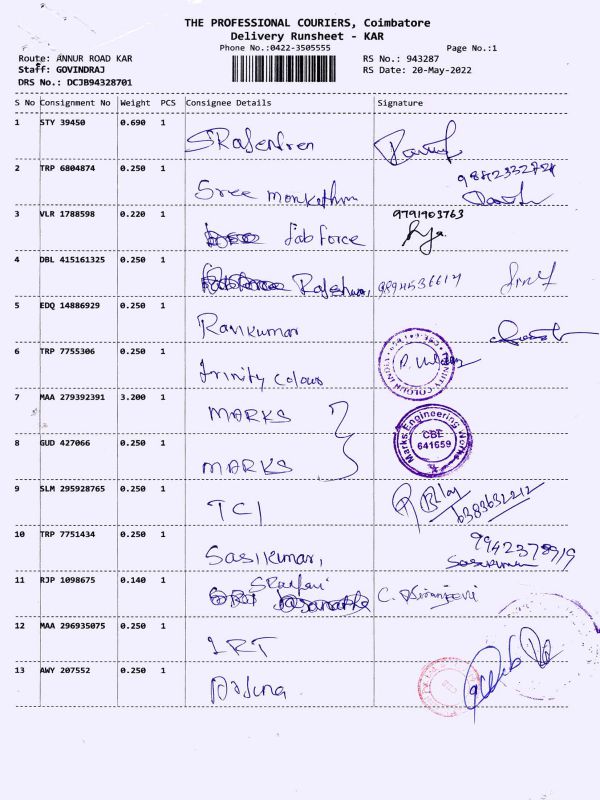 THE PROFESSIONAL COURIERS, Coimbatore
Delivery Runsheet - KAR
Phone No.:0422-3505555 Page No.:1
Route: ANNUR ROAD KAR RS No.: 943287
Staff: GOVINDRAJ RS Date: 20-May-2022
DRS No.: DCJB94328701
S No Consignment No Weight PCS Consignee Details Signature
1 STY 39450 0.690 1
2 TRP 6804874 0.250 1 Sree
3 VLR 1788598 0.220 1 Job Force 9791903763
4 DBL 415161325 0.250 1
5 EDQ 14886929 0.250 1 Ramkumar
6 TRP 7755306 0.250 1 Trinity Colour
7 MAA 279392391 3.200 1 MARKS
8 GUD 427066 0.250 1 MARKS Marks Engineering Works CBE 641659
9 SLM 295928765 0.250 1 TCI 6383632212
10 TRP 7751434 0.250 1 Sasikumar, 9942378919 Sasikumar
11 RJP 1098675 0.140 1
12 MAA 296935075 0.250 1 IRT
13 AWY 207552 0.250 1